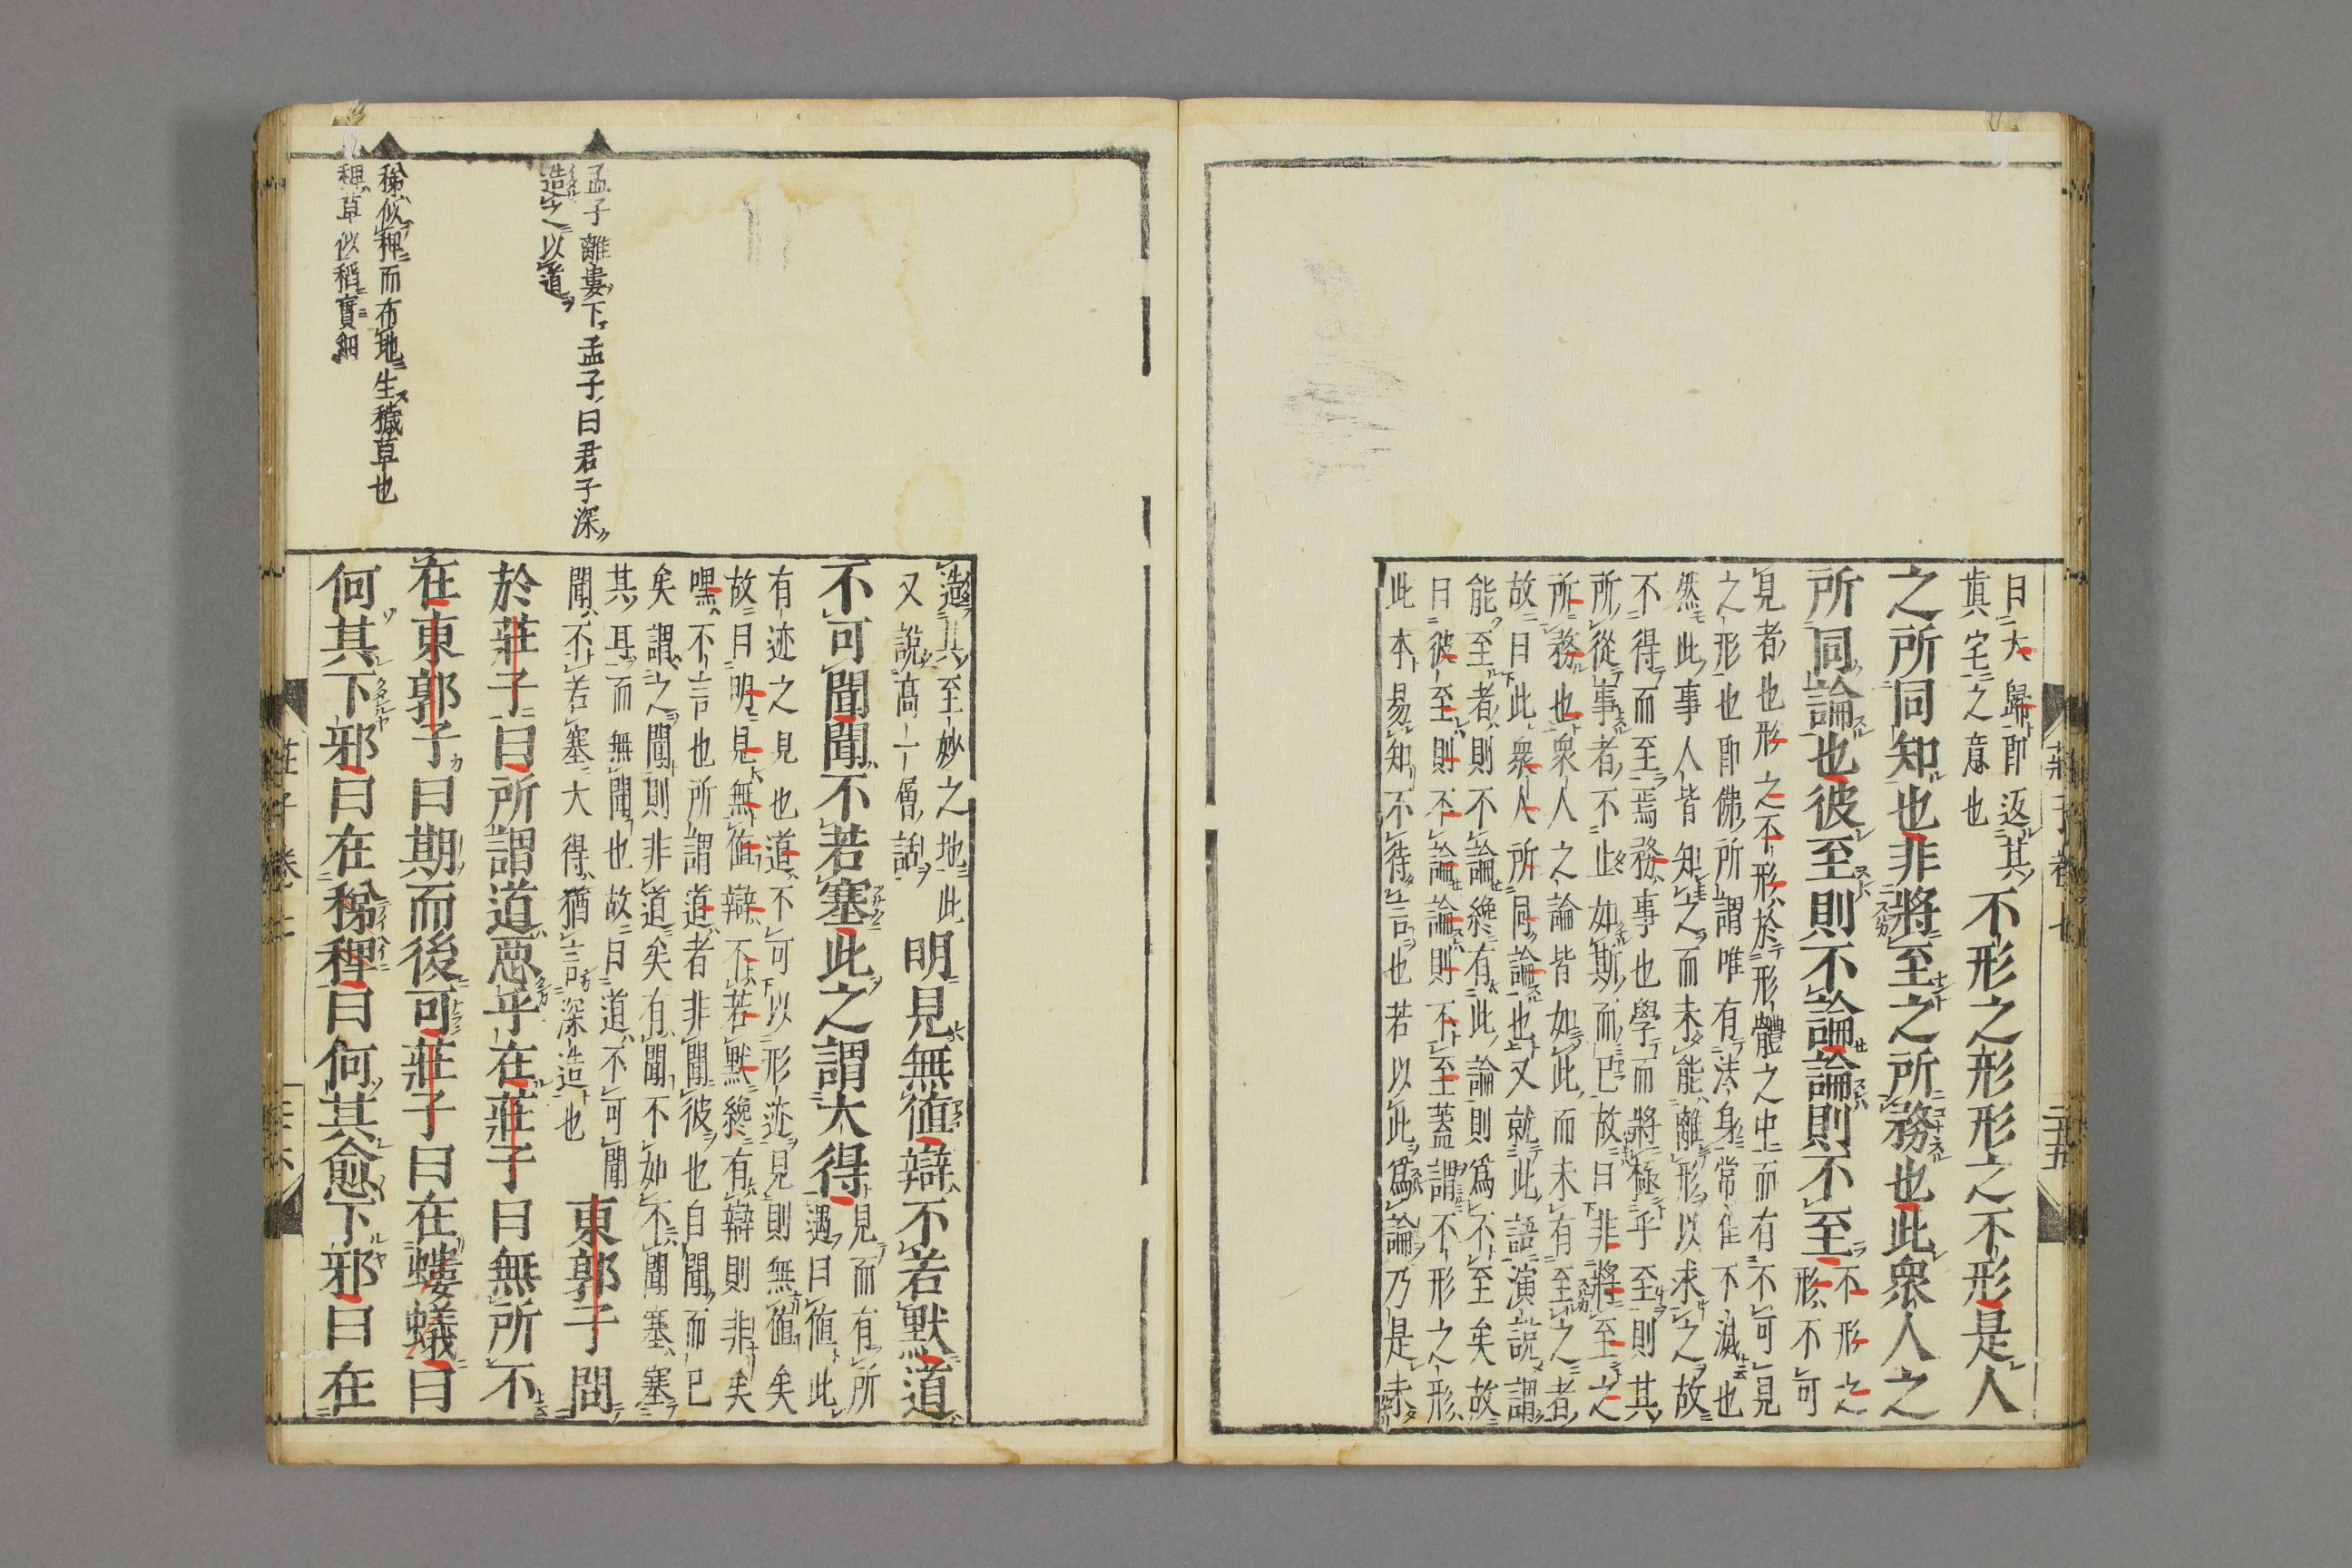 曰大歸卽返其
眞宅之意也
不形之形形之不形是人
之所同知也非將至之所務也此衆人之
所同論也彼至則不論論則不至
不形之
形不可
見者也形之不形於形體之中而有不可見
之形也卽佛所謂唯有法身常住不滅也
然此事人皆知之而未能離形以求之故
不得而至焉務事也學而將極乎至則其
所從事者不止如斯而已故曰非將至之
所務也衆人之論皆如此而未有至之者
故曰此衆人所同論也又就此語演說謂
能至者則不論纔有此論則爲不至矣故
曰彼至則不論論則不至蓋謂不形之形
此本易知不待言也若以此爲論乃是未
莊子卷七
二十五
造其至妙之地此
又說高一層話
明見無値辯不若默道
不可聞聞不若塞此之謂大得
見而有所
遇曰値此
有迹之見也道不可以形迹見則無値矣
故曰明見無値辯不若默纔有辯則非矣
嘿不言也所謂道者非聞彼也自聞而已
矣謂之聞則非道矣有聞不如不聞塞塞
其耳而無聞也故曰道不可聞
聞不若塞大得猶言深造也
東郭子問
於莊子曰所謂道惡乎在莊子曰無所不
在東郭子曰期而後可莊子曰在螻蟻曰
何其下邪曰在稊稗曰何其愈下邪曰在
孟子離婁下孟子曰君子深
造之以道
稊似稗而布地生穢草也
稗草似稻實細